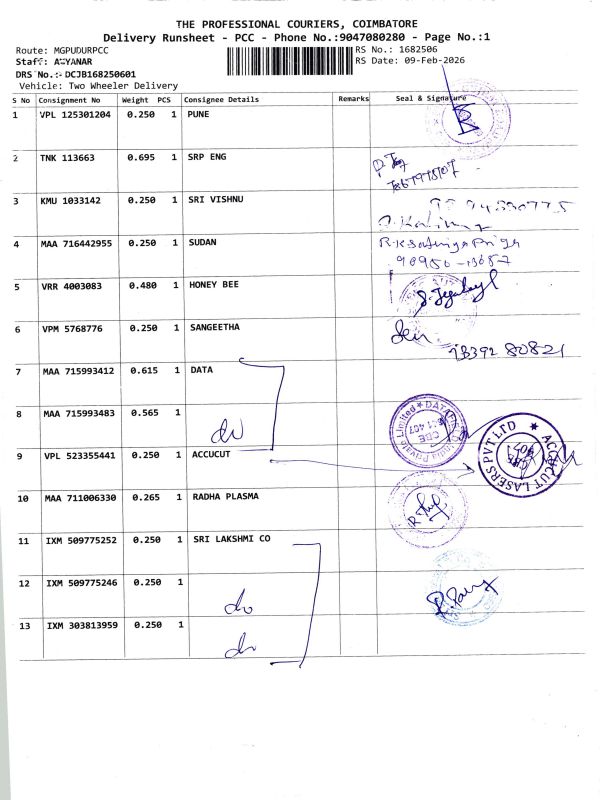 THE PROFESSIONAL COURIERS, COIMBATORE
Delivery Runsheet - PCC - Phone No.:9047080280 - Page No.:1
Route: MGPUDURPCC RS No.: 1682506
Staff: AYYANAR RS Date: 09-Feb-2026
DRS No.:- DCJB168250601
Vehicle: Two Wheeler Delivery
S No Consignment No Weight PCS Consignee Details Remarks Seal & Signature
1 VPL 125301204 0.250 1 PUNE
2 TNK 113663 0.695 1 SRP ENG
3 KMU 1033142 0.250 1 SRI VISHNU
4 MAA 716442955 0.250 1 SUDAN
5 VRR 4003083 0.480 1 HONEY BEE
6 VPM 5768776 0.250 1 SANGEETHA
7 MAA 715993412 0.615 1 DATA
8 MAA 715993483 0.565 1 do
9 VPL 523355441 0.250 1 ACCUCUT ACCUCUT LASERS PVT LTD
10 MAA 711006330 0.265 1 RADHA PLASMA
11 IXM 509775252 0.250 1 SRI LAKSHMI CO
12 IXM 509775246 0.250 1 do
13 IXM 303813959 0.250 1 do